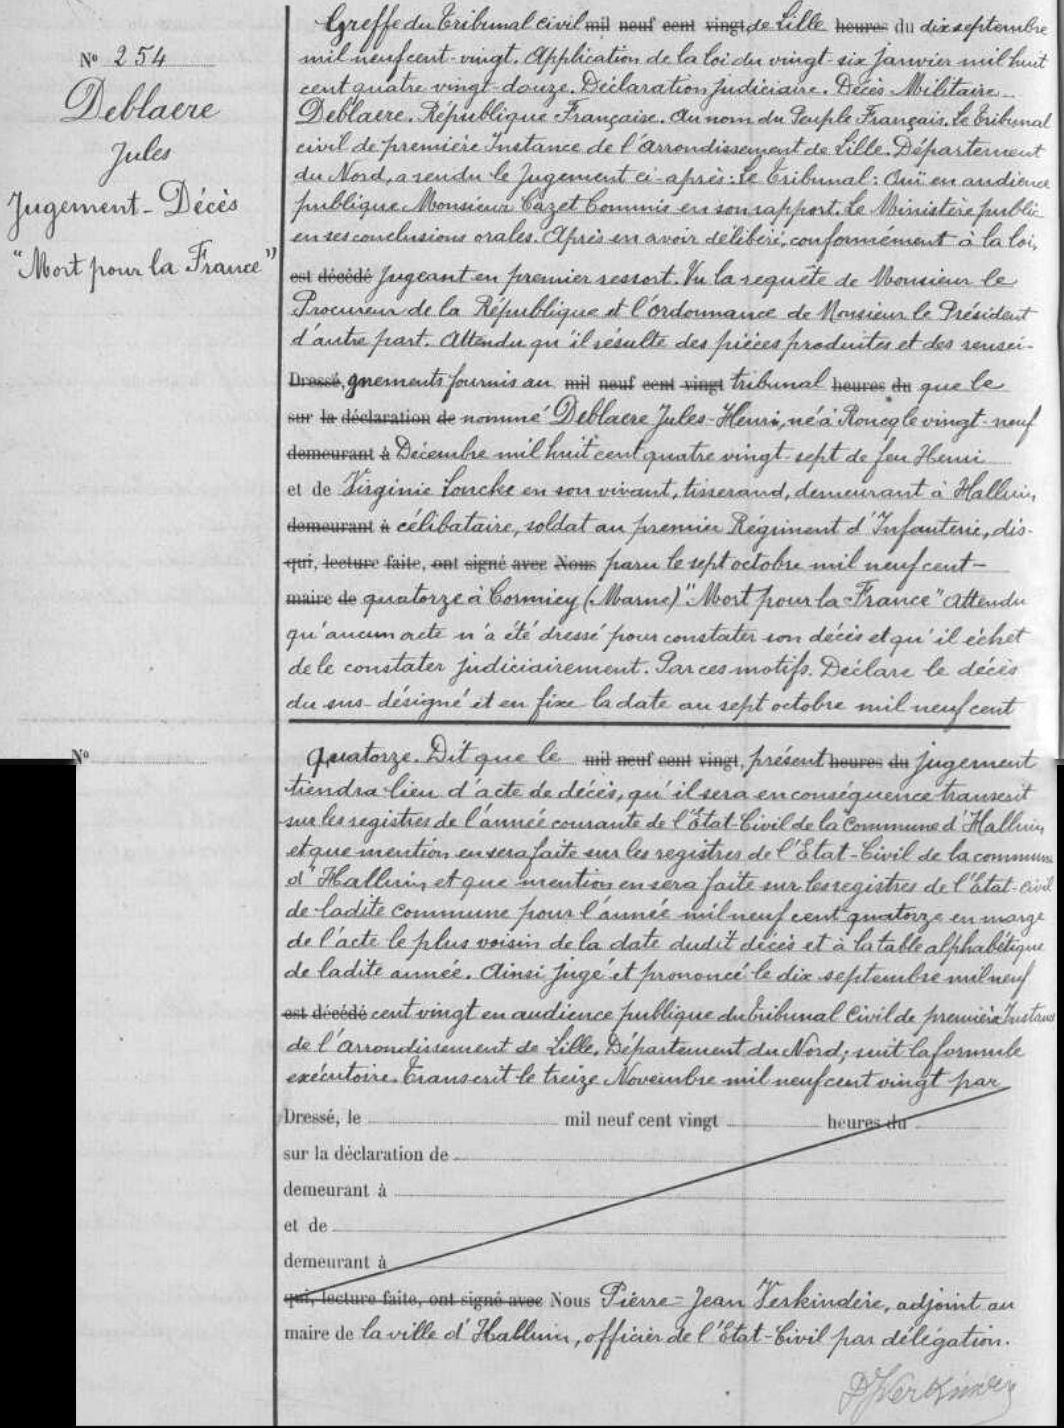 Nº 254
Deblaere
Jules
Jugement - Décès
"Mort pour la France"
Greffe du Tribunal civil mil neuf cent vingt de Lille heures du dix septembre
mil neuf cent-vingt. Application de la loi du vingt-six janvier mil huit
cent quatre vingt-douze. Déclaration judiciaire. Décès Militaire
Deblaere. République Française. Au nom du Peuple Français. Le Tribunal
civil de première Instance de l'arrondissement de Lille. Département
du Nord, a rendu le Jugement ci-après: Le Tribunal: Ouï en audience
publique Monsieur Cazet Commis en son rapport. Le Ministère public
en ses conclusions orales. Après en avoir délibéré, conformément à la loi,
est décédé Jugeant en premier ressort. Vu la requête de Monsieur le
Procureur de la République et l'ordonnance de Monsieur le Président
d'autre part. Attendu qu'il résulte des pièces produites et des rensei-
Dressé, gnements fournis au mil neuf cent vingt tribunal heures du que le
sur la déclaration de nommé Deblaere Jules-Henri, né à Roncq le vingt-neuf
demeurant à Décembre mil huit cent quatre vingt-sept de feu Henri
et de Virginie Loncke en son vivant, tisserand, demeurant à Halluin,
demeurant à célibataire, soldat au premier Régiment d'Infanterie, dis-
qui, lecture faite, ont signé avec Nous paru le sept octobre mil neuf cent-
maire de quatorze à Cormicy (Marne) "Mort pour la France" Attendu
qu'aucun acte n'a été dressé pour constater son décès et qu'il échet
de le constater judiciairement. Par ces motifs. Déclare le décès
du sus-désigné et en fixe la date au sept octobre mil neuf cent
Nº
quatorze. Dit que le mil neuf cent vingt, présent heures du jugement
tiendra lieu d'acte de décès, qu'il sera en conséquence transcrit
sur les registres de l'année courante de l'Etat-Civil de la Commune d'Halluin,
et que mention en sera faite sur les registres de l'Etat-Civil de la commune
d'Halluin, et que mention en sera faite sur les registres de l'Etat-civil
de ladite commune pour l'année mil neuf cent quatorze en marge
de l'acte le plus voisin de la date dudit décès et à la table alphabétique
de ladite année. Ainsi jugé et prononcé le dix septembre mil neuf
est décédé cent vingt en audience publique du tribunal Civil de première Instance
de l'arrondissement de Lille, Département du Nord; suit la formule
exécutoire. Transcrit le treize Novembre mil neuf cent vingt par
Dressé, le mil neuf cent vingt heures du
sur la déclaration de
demeurant à
et de
demeurant à
qui, lecture faite, ont signé avec Nous Pierre-Jean Verkindère, adjoint au
maire de la ville d'Halluin, officier de l'Etat-Civil par délégation.